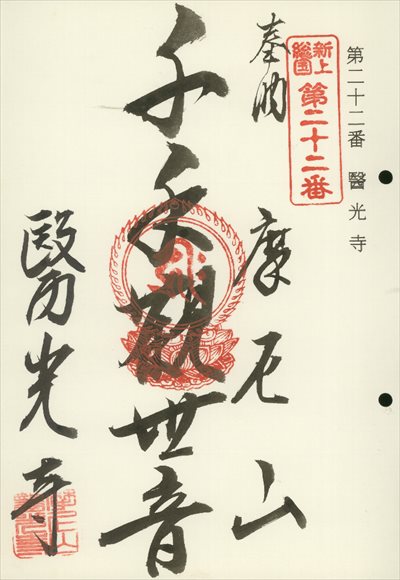 第二十二番 醫光寺
新上
総国
第二十二番
奉納
摩尼山
千手観世音
醫光寺